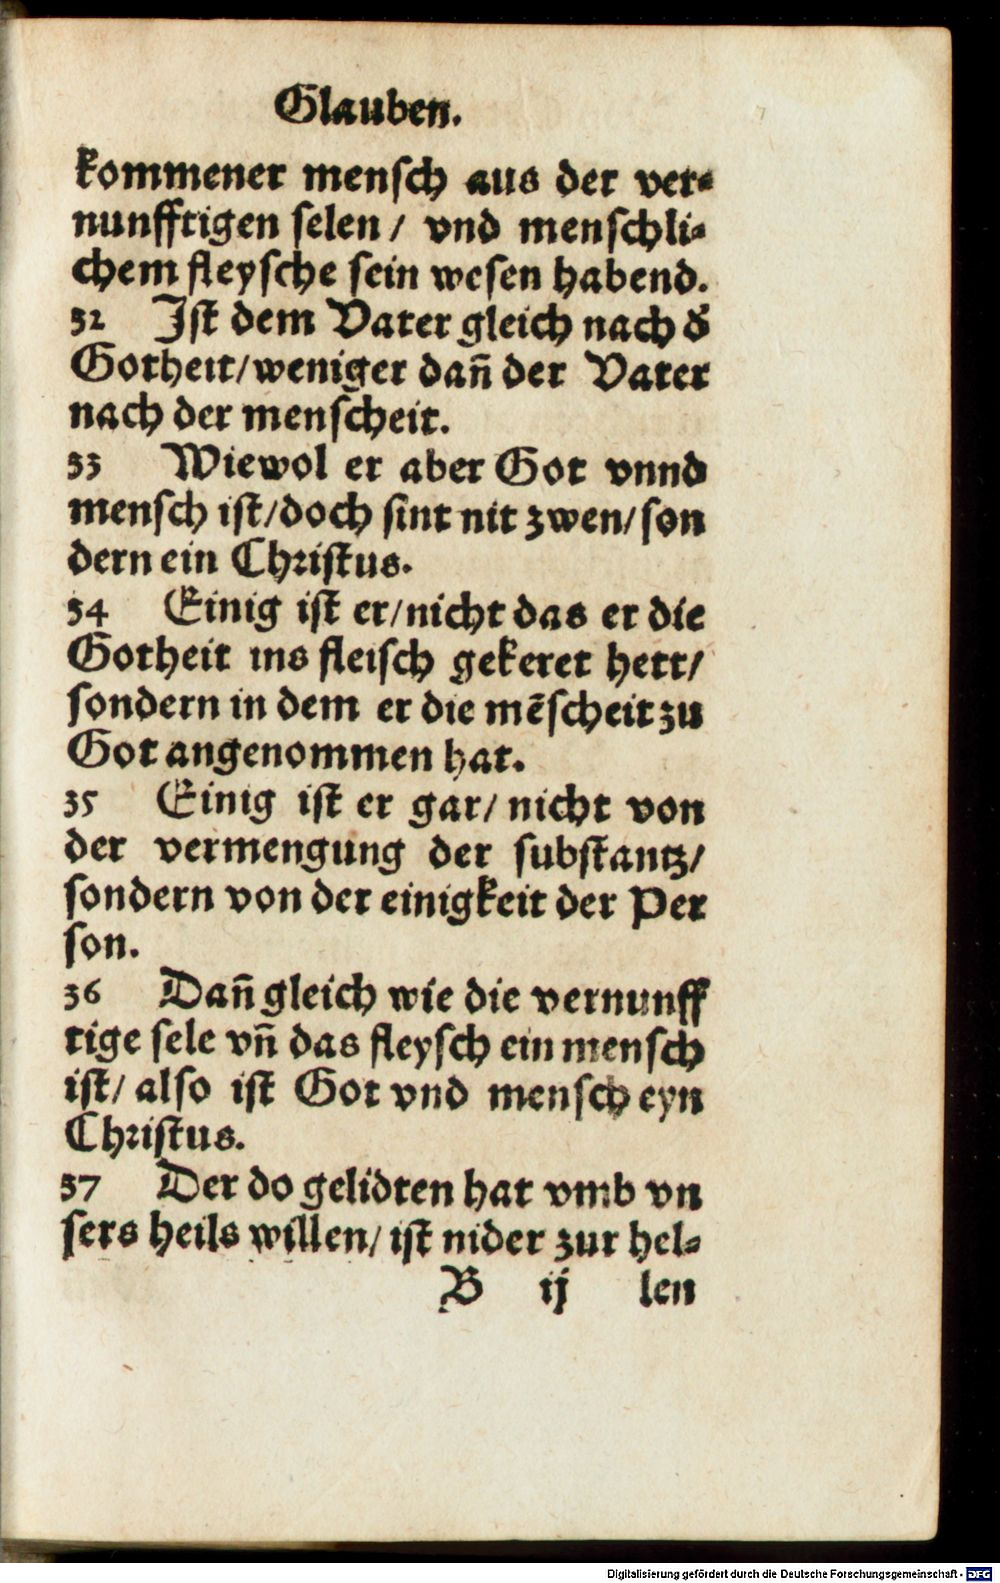 Glauben.
kommener mensch aus der ver⸗
nunfftigen selen/ vnd menschli⸗
chem fleysche sein wesen habend.
32 Ist dem Vater gleich nach d̕
Gotheit/weniger dañ der Vater
nach der menscheit.
33 Wiewol er aber Got vnnd
mensch ist/doch sint nit zwen/son
dern ein Christus.
34 Einig ist er/nicht das er die
Gotheit ins fleisch gekeret hett/
sondern in dem er die mēscheit zu
Got angenommen hat.
35 Einig ist er gar/ nicht von
der vermengung der substantz/
sondern von der einigkeit der Per
son.
36 Dañ gleich wie die vernunff
tige sele vñ das fleysch ein mensch
ist/ also ist Got vnd mensch eyn
Christus.
37 Der do gelidten hat vmb vn
sers heils willen/ ist nider zur hel⸗
B ij len
Digitalisierung gefördert durch die Deutsche Forschungsgemeinschaft - DFG